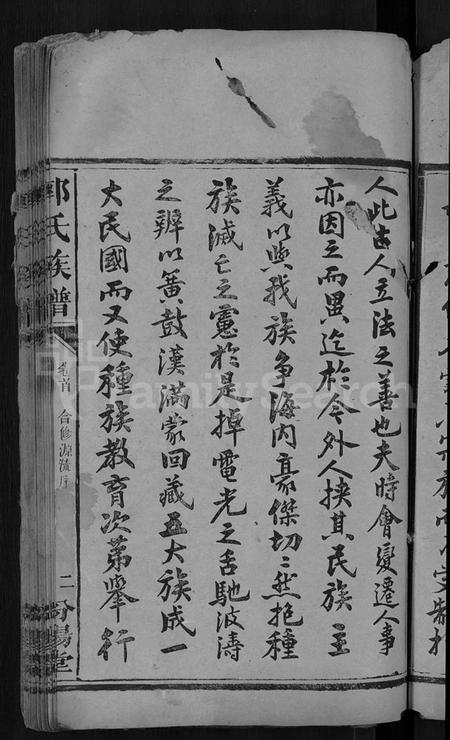 人此古人立法之善也夫時會變遷人事
亦因之而異迄於今外人挾其民族主
義以與我族爭海內豪傑切切然抱種
族滅亡之憲於是掉電光之舌馳波濤
之辨以簧鼓漢滿蒙回藏五大族成一
大民國而又使種族教育次第舉行
郭氏族譜
卷首 合修源流序
二
汾陽堂
FamilySearch